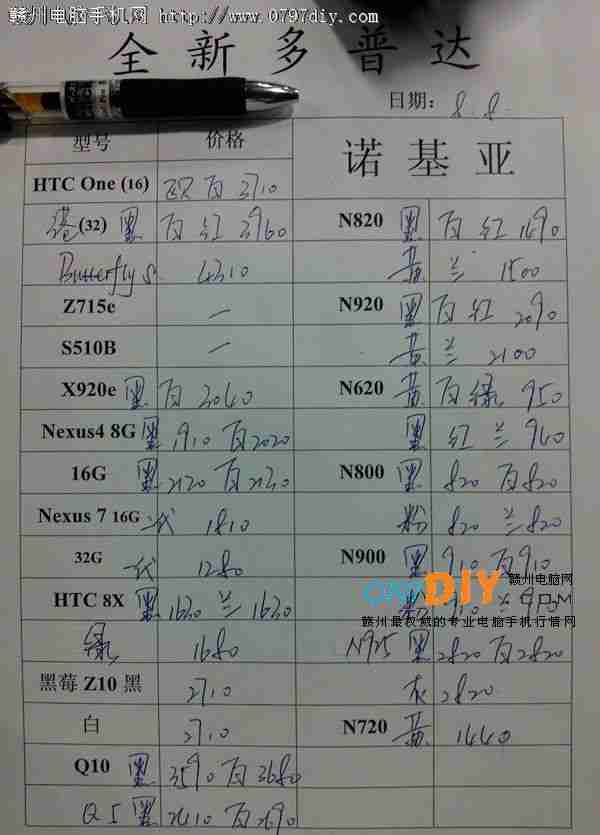 赣州电脑手机网 http://www.0797diy.com
全新多普达
日期: 8.8.
型号 价格 诺基亚
HTC One (16) 欧 白 3710
港(32) 黑 白 红 3960 N820 黑 白 红 1490
Butterfly S 4310 黄 兰 1500
Z715e 一 N920 黑 白 红 2090
S510B 一 黄 兰 2100
X920e 黑 白 3040 N620 黄 白 绿 950
Nexus4 8G 黑 1910 白 2020 黑 红 兰 940
16G 黑 2120 白 2230 N800 黑 820 白 820
Nexus 7 16G 二代 1810 粉 820 兰 820
32G 一代 1280 N900 黑 910 白 910
HTC 8X 黑 1620 兰 1620 910 兰
DIY 赣州电脑网
.COM
赣州最权威的专业电脑手机行情网
绿 1680 N925 黑 2820 白 2820
黑莓 Z10 黑 2710 灰 2820
白 2710 N720 黄 1440
Q10 黑 3590 白 3680
Q5 黑 2410 白 2690